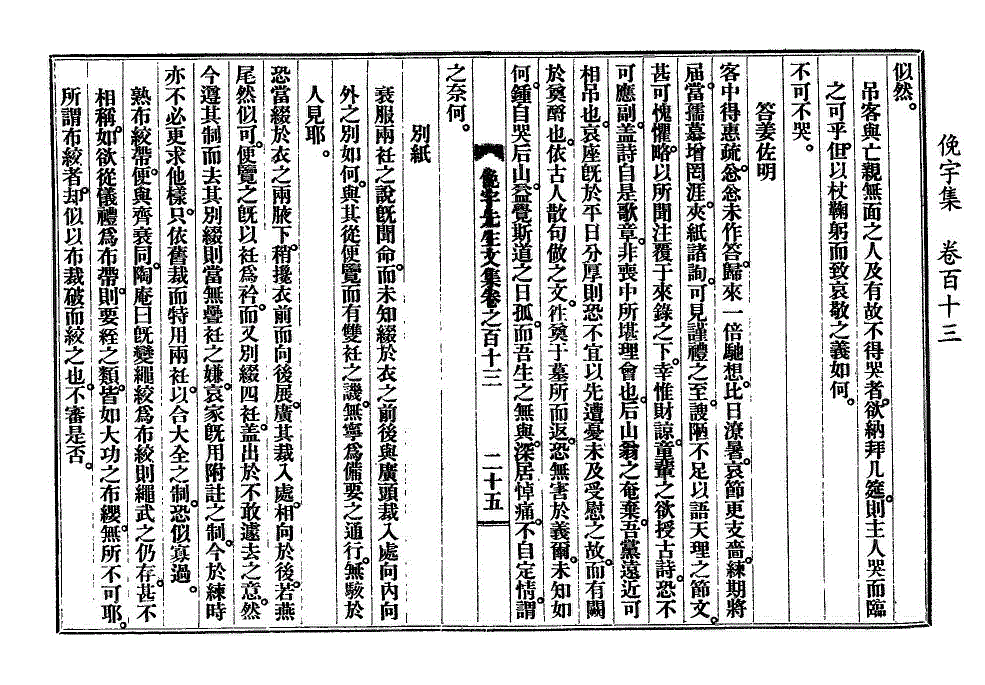 俛宇集　卷百十三
似然。
吊客與亡親無面之人及有故不得哭者。欲納拜几筵。則主人哭而臨
之可乎。但以杖鞠躬而致哀敬之義如何。
不可不哭。
答姜佐明
客中得惠疏。忩忩未作答。歸來一倍馳想。比日潦暑。哀節更支嗇。練期將
届。當孺慕增罔涯。夾紙諸詢。可見謹禮之至。謏陋不足以語天理之節文。
甚可愧懼。略以所聞注覆于來錄之下。幸惟財諒。童輩之欲授古詩。恐不
可應副。盖詩自是歌章。非喪中所堪理會也。后山翁之奄棄。吾黨遠近可
相吊也。哀座旣於平日分厚則恐不宜以先遭憂未及受慰之故。而有闕
於奠酹也。依古人散句儆之文。往奠于墓所而返。恐無害於義爾。未知如
何。鍾自哭后山。益覺斯道之日孤。而吾生之無與。深居悼痛。不自定情。謂
之奈何。
俛宇先生文集卷之百十三　二十五
別紙
衰服兩衽之說旣聞命。而未知綴於衣之前後與廣頭裁入處向內向
外之別如何。與其從便覽而有雙衽之譏。無寧爲備要之通行。無駭於
人見耶。
恐當綴於衣之兩腋下。稍攙衣前而向後展。廣其裁入處。相向於後。若燕
尾然似可。便覽之旣以衽爲衿。而又別綴四衽。盖出於不敢遽去之意。然
今遵其制而去其別綴則當無疊衽之嫌。哀家旣用附註之制。今於練時
亦不必更求他樣。只依舊裁而特用兩衽。以合大全之制。恐似寡過。
熟布絞帶。便與齊衰同。陶庵曰旣變繩絞爲布絞則繩武之仍存。甚不
相稱。如欲從儀禮爲布帶。則要絰之類。皆如大功之布纓。無所不可耶。
所謂布絞者。却似以布裁破而絞之也。不審是否。